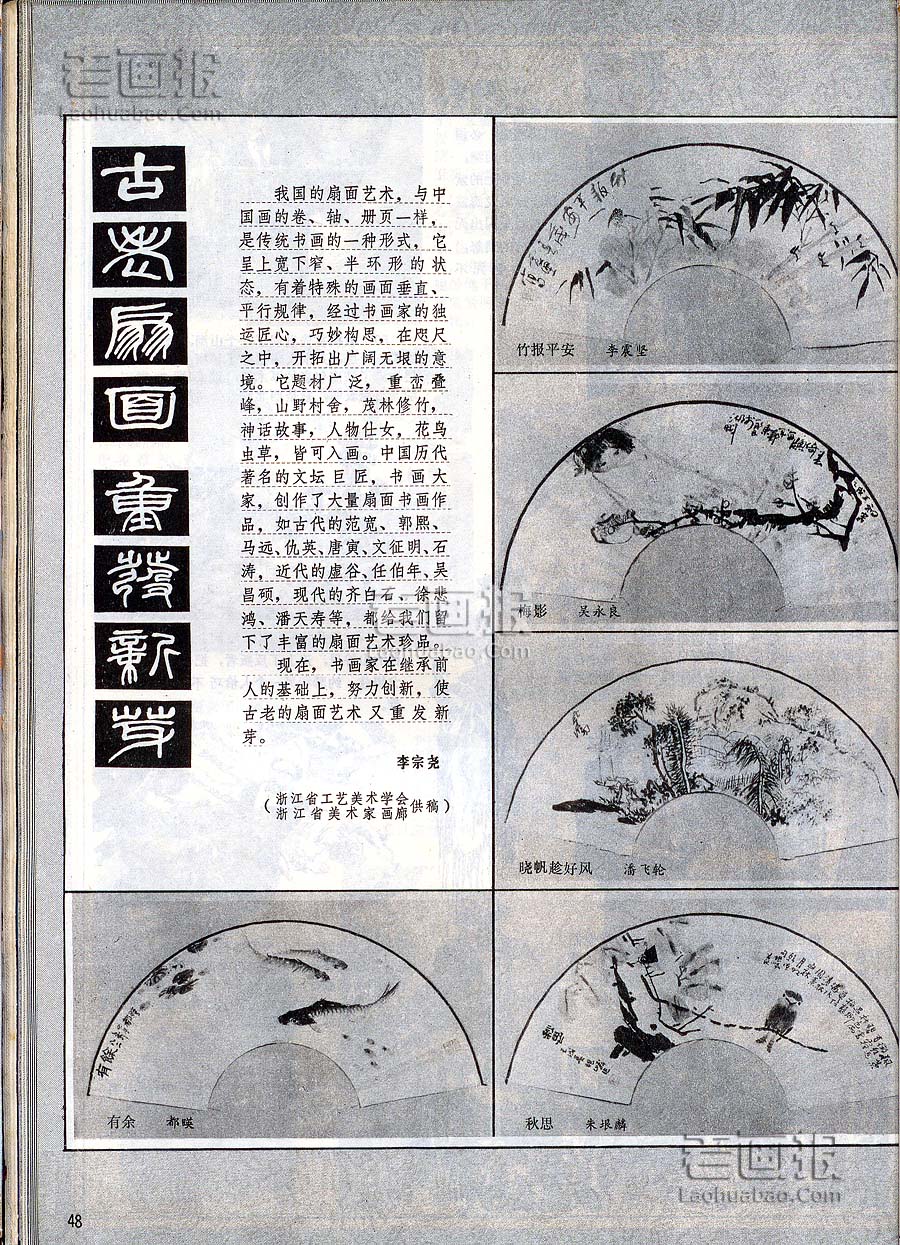 老画报
Laohuabao.Com
古
老
扇
面
重
發
新
芽
我国的扇面艺术，与中
国画的卷、轴、册页一样，
是传统书画的一种形式，它
呈上宽下窄、半环形的状
态，有着特殊的画面垂直、
平行规律，经过书画家的独
运匠心，巧妙构思，在咫尺
之中，开拓出广阔无垠的意
境。它题材广泛，重峦叠
峰，山野村舍，茂林修竹，
神话故事，人物仕女，花鸟
虫草，皆可入画。中国历代
著名的文坛巨匠，书画大
家，创作了大量扇面书画作
品，如古代的范宽、郭熙、
马远、仇英、唐寅、文征明、石
涛，近代的虚谷、任伯年、吴
昌硕，现代的齐白石、徐悲
鸿、潘天寿等，都给我们留
下了丰富的扇面艺术珍品。
现在，书画家在继承前
人的基础上，努力创新，使
古老的扇面艺术又重发新
芽。
李宗尧
（浙江省工艺美术学会
浙江省美术家画廊供稿）
竹报平安 李震坚
梅影 吴永良
老画报
Laohuabao.Com
晓帆趁好风 潘飞轮
有餘
有余 都暎
秋思 朱垠麟
老画报
Laohuabao.Com
48